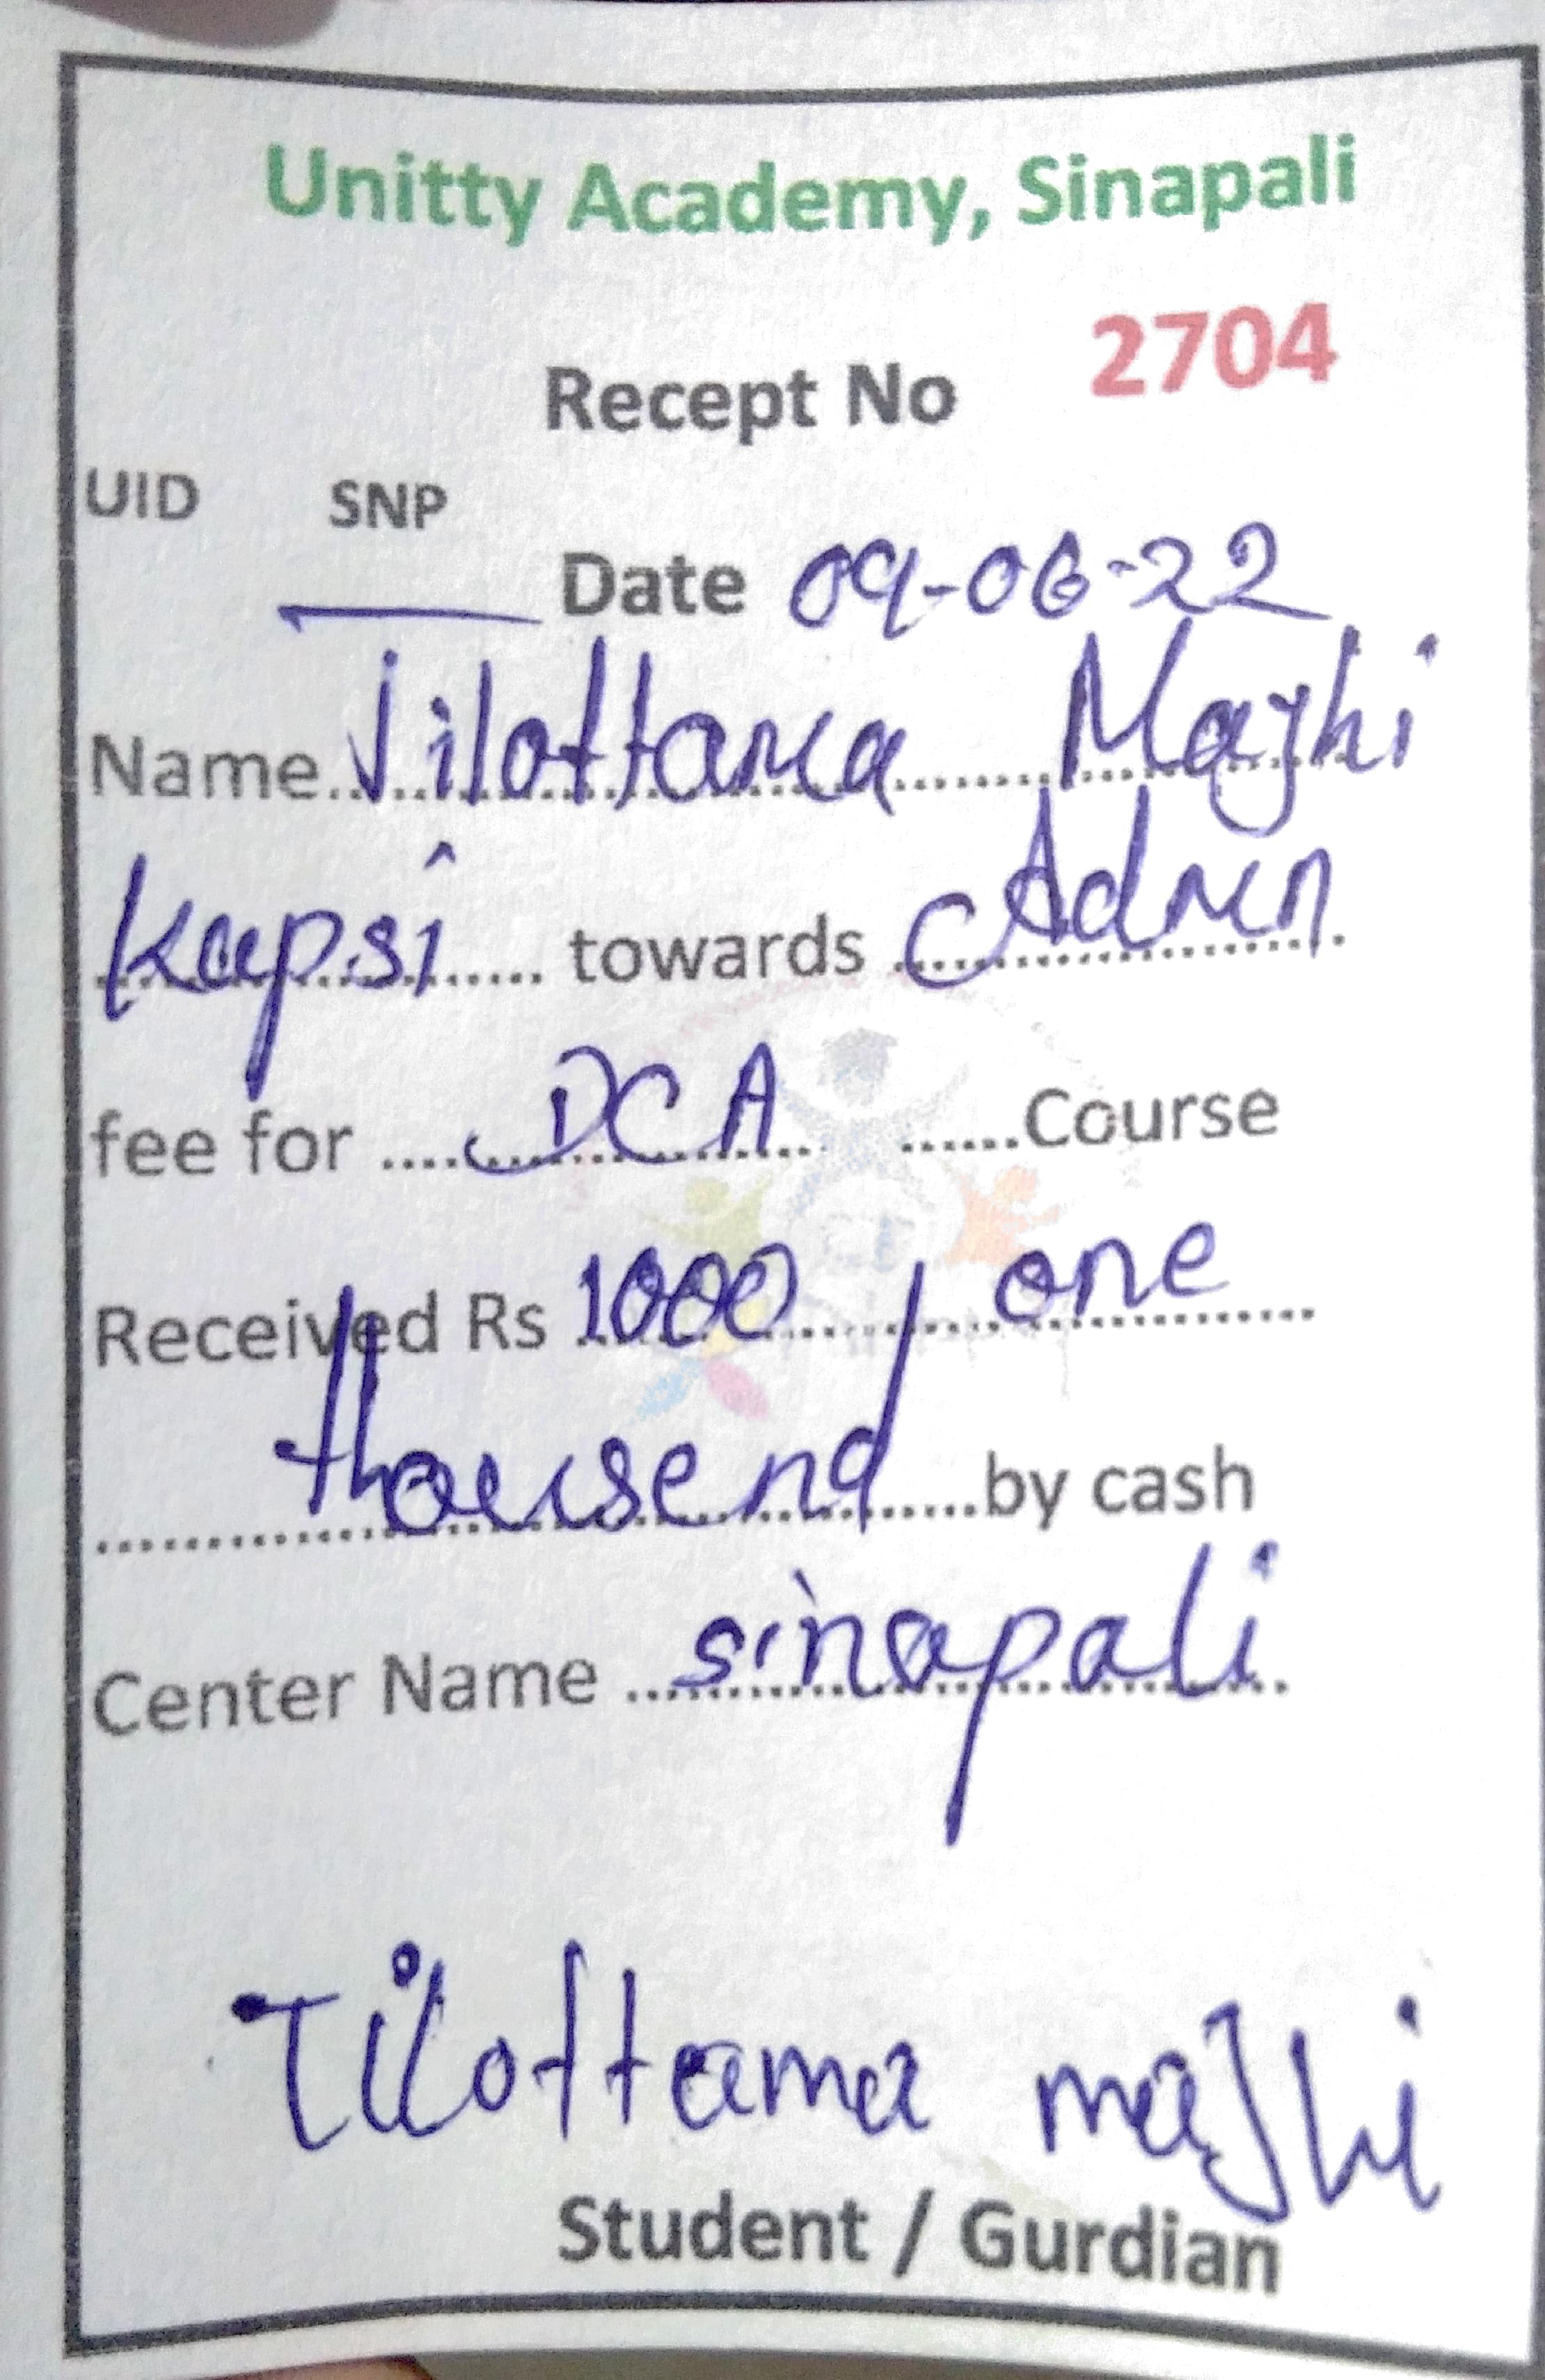 Unitty Academy, Sinapali
2704
Recept No
UID SNP
Date 09-06-22
Name Tilottama Majhi
Kapsi towards Admn
fee for DCA Course
Received Rs 1000, one
thousend by cash
Center Name sinapali
Tilottama majhi
Student / Gurdian